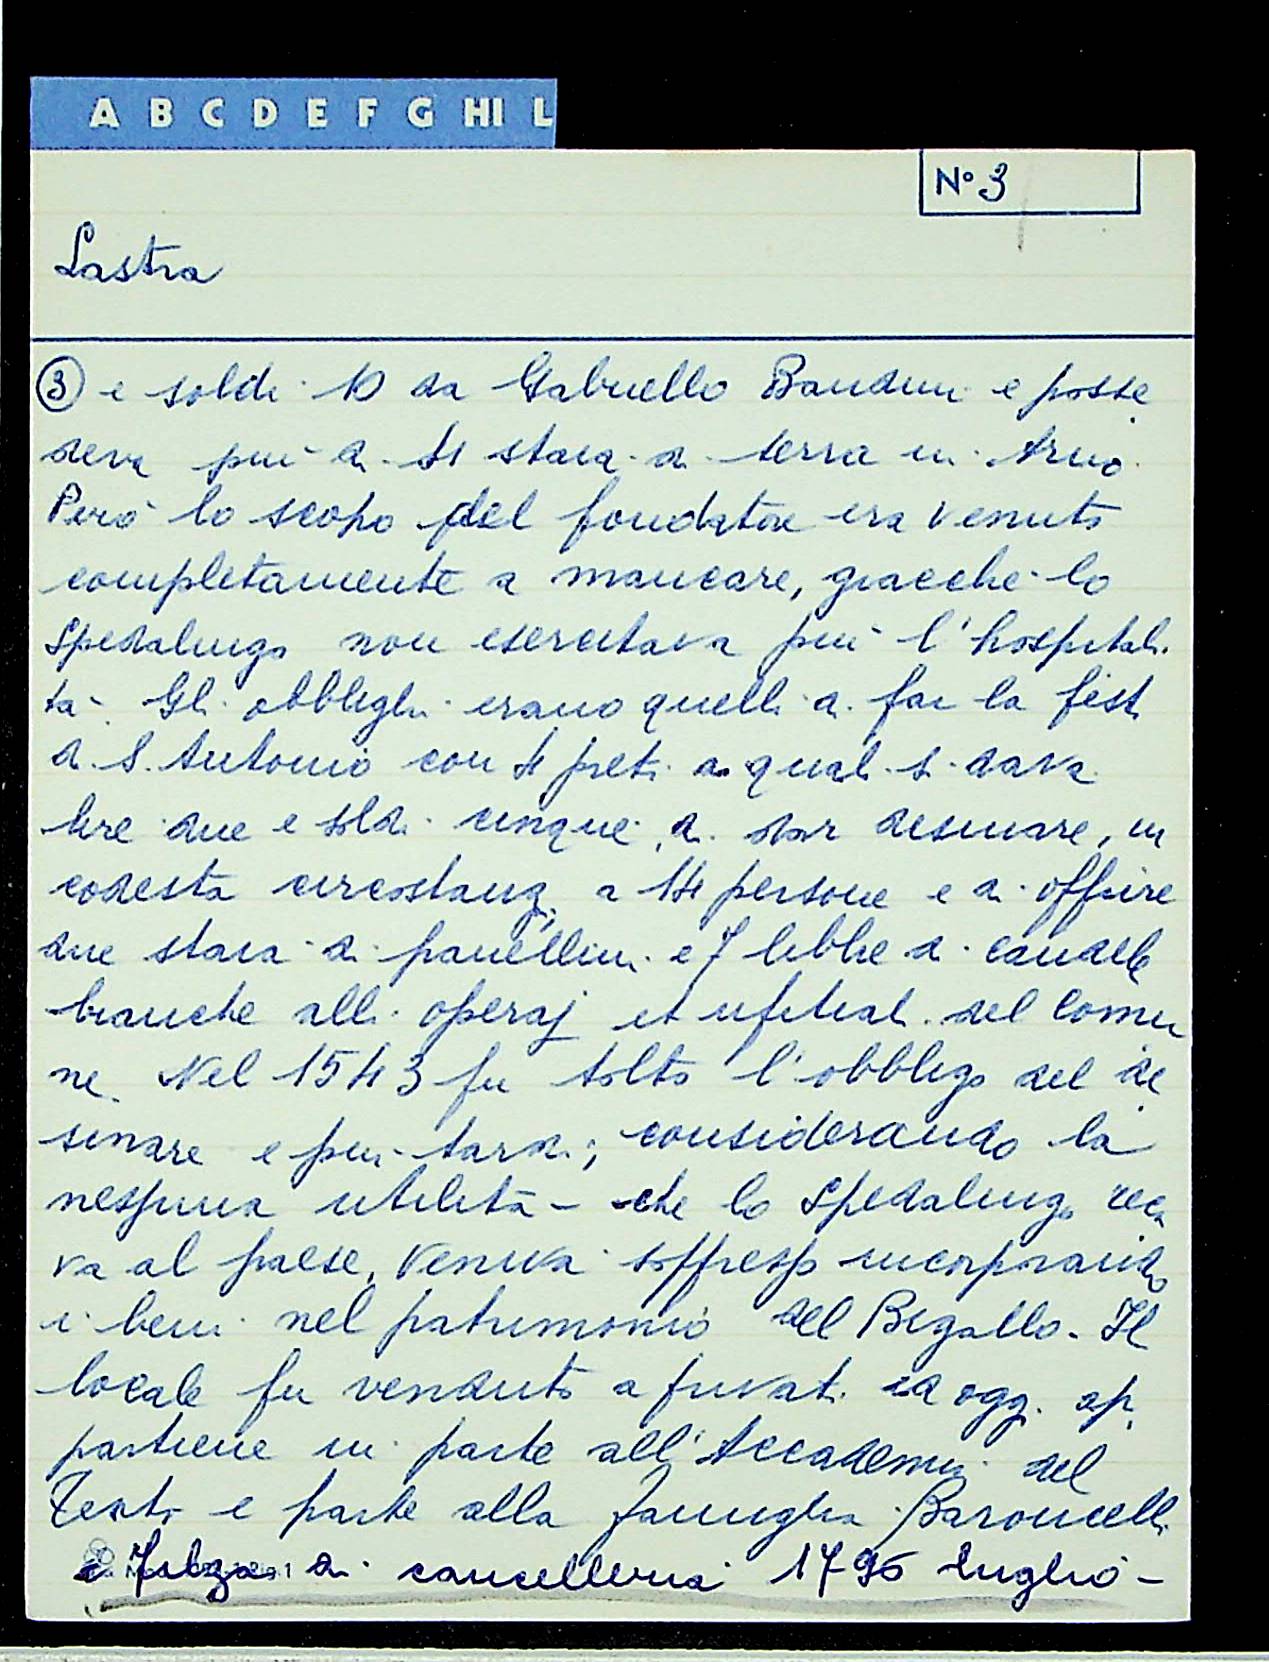 A B C D E F G HI L
N° 3
Lastra
③ e soldi 10 da Gabriello Bandini e posse
deva più di 4 staia di terra in Arno.
Però lo scopo del fondatore era venuto
completamente a mancare, giacchè lo
spedalingo non esercitava più l'hospitali
tà. Gli obblighi erano quelli di far la festa
di S. Antonio con 4 preti ai quali si dava
lire due e soldi cinque, di dar desinare, in
codesta circostanza, a 14 persone e di offrire
due staia di panellini e 7 libbre di candele
bianche alli operaj et ufitiali del Comu
ne. Nel 1543 fu tolto l'obbligo del de
sinare e più tardi, considerando la
nessuna utilità che lo Spedalingo reca
va al paese, veniva soppresso incorporando
i beni nel patrimonio del Bigallo. Il
locale fu venduto a privati ed oggi ap
partiene in parte all'Accademia del
Teatro e parte alla famiglia Baroncelli
Filza di cancelleria 1796 luglio -